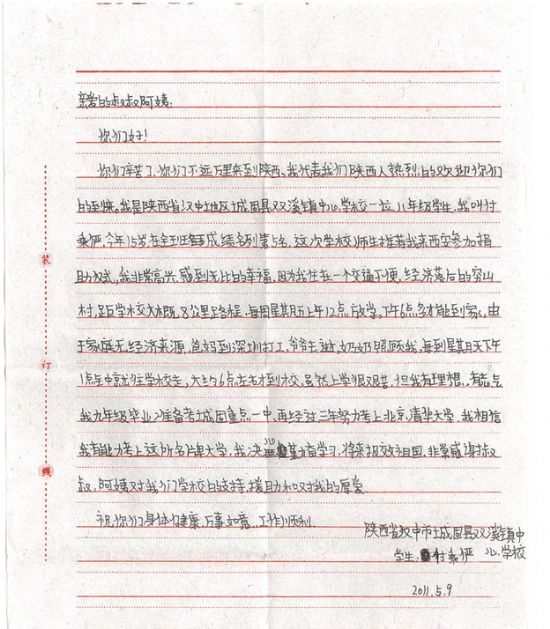 亲爱的叔叔阿姨:
你们好!
你们辛苦了,你们不远万里来到陕西,我代表我们陕西人热烈的欢迎你们
的到来。我是陕西省汉中地区城固县双溪镇中心学校一位八年级学生,我叫付
秉俨,今年15岁在全班成绩名列第5名,这次学校师生推荐我来西安参加捐
助仪式,我非常高兴,感到无比的幸福,因为我住在一个交通不便,经济落后的穷山
村,距学校大概8公里路程,每周星期五上午12点放学,下午6点多才能到家,由
于家庭无经济来源,爸妈到深圳打工,爷爷去世,奶奶照顾我,每到星期天下午
1点年中就往学校走,大约6点左右才到校,虽然上学很艰苦,但我有理想、有志气
我九年级毕业准备考城固重点一中,再经过三年努力考上北京清华大学,我相信
我有能力考上这所名牌大学,我决心勤奋学习,将来报效祖国,非常感谢叔
叔,阿姨对我们学校的支持,援助和对我的厚爱。
祝你们身体健康 万事如意,工作顺利
陕西省汉中市城固县双溪镇中
心学校
学生:付秉俨
2011.5.9
装
订